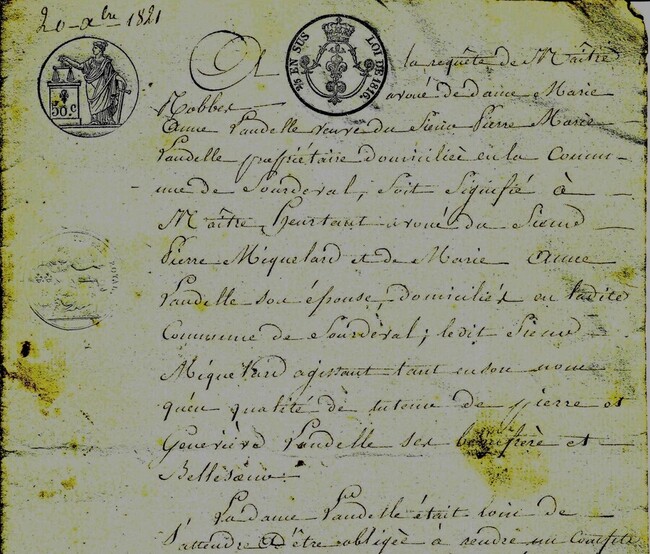 20 xbre 1821
50.C
2/10 EN SUS LOI DE 1816.
ROYAL
A la requête de Maître
Nobbes avoué de dame Marie
Anne Vaudelle veuve du Sieur Pierre Marie
Vaudelle propriétaire domiciliée en la Commu-
ne de Sourdeval, soit Signifié à
Maître heurtaut avoué du Sieur
Pierre Miquelard et de Marie Anne
Vaudelle son épouse domiciliés en ladite
Commune de Sourdeval; ledit Sieur
Miquelard agissant tant en son nom
qu'en qualité de tuteur de pierre et
Geneviève Vaudelle ses beaufrère et
Bellesœur.
La dame Vaudelle était loin de
s'attendre d'être obligée à rendre un Compte